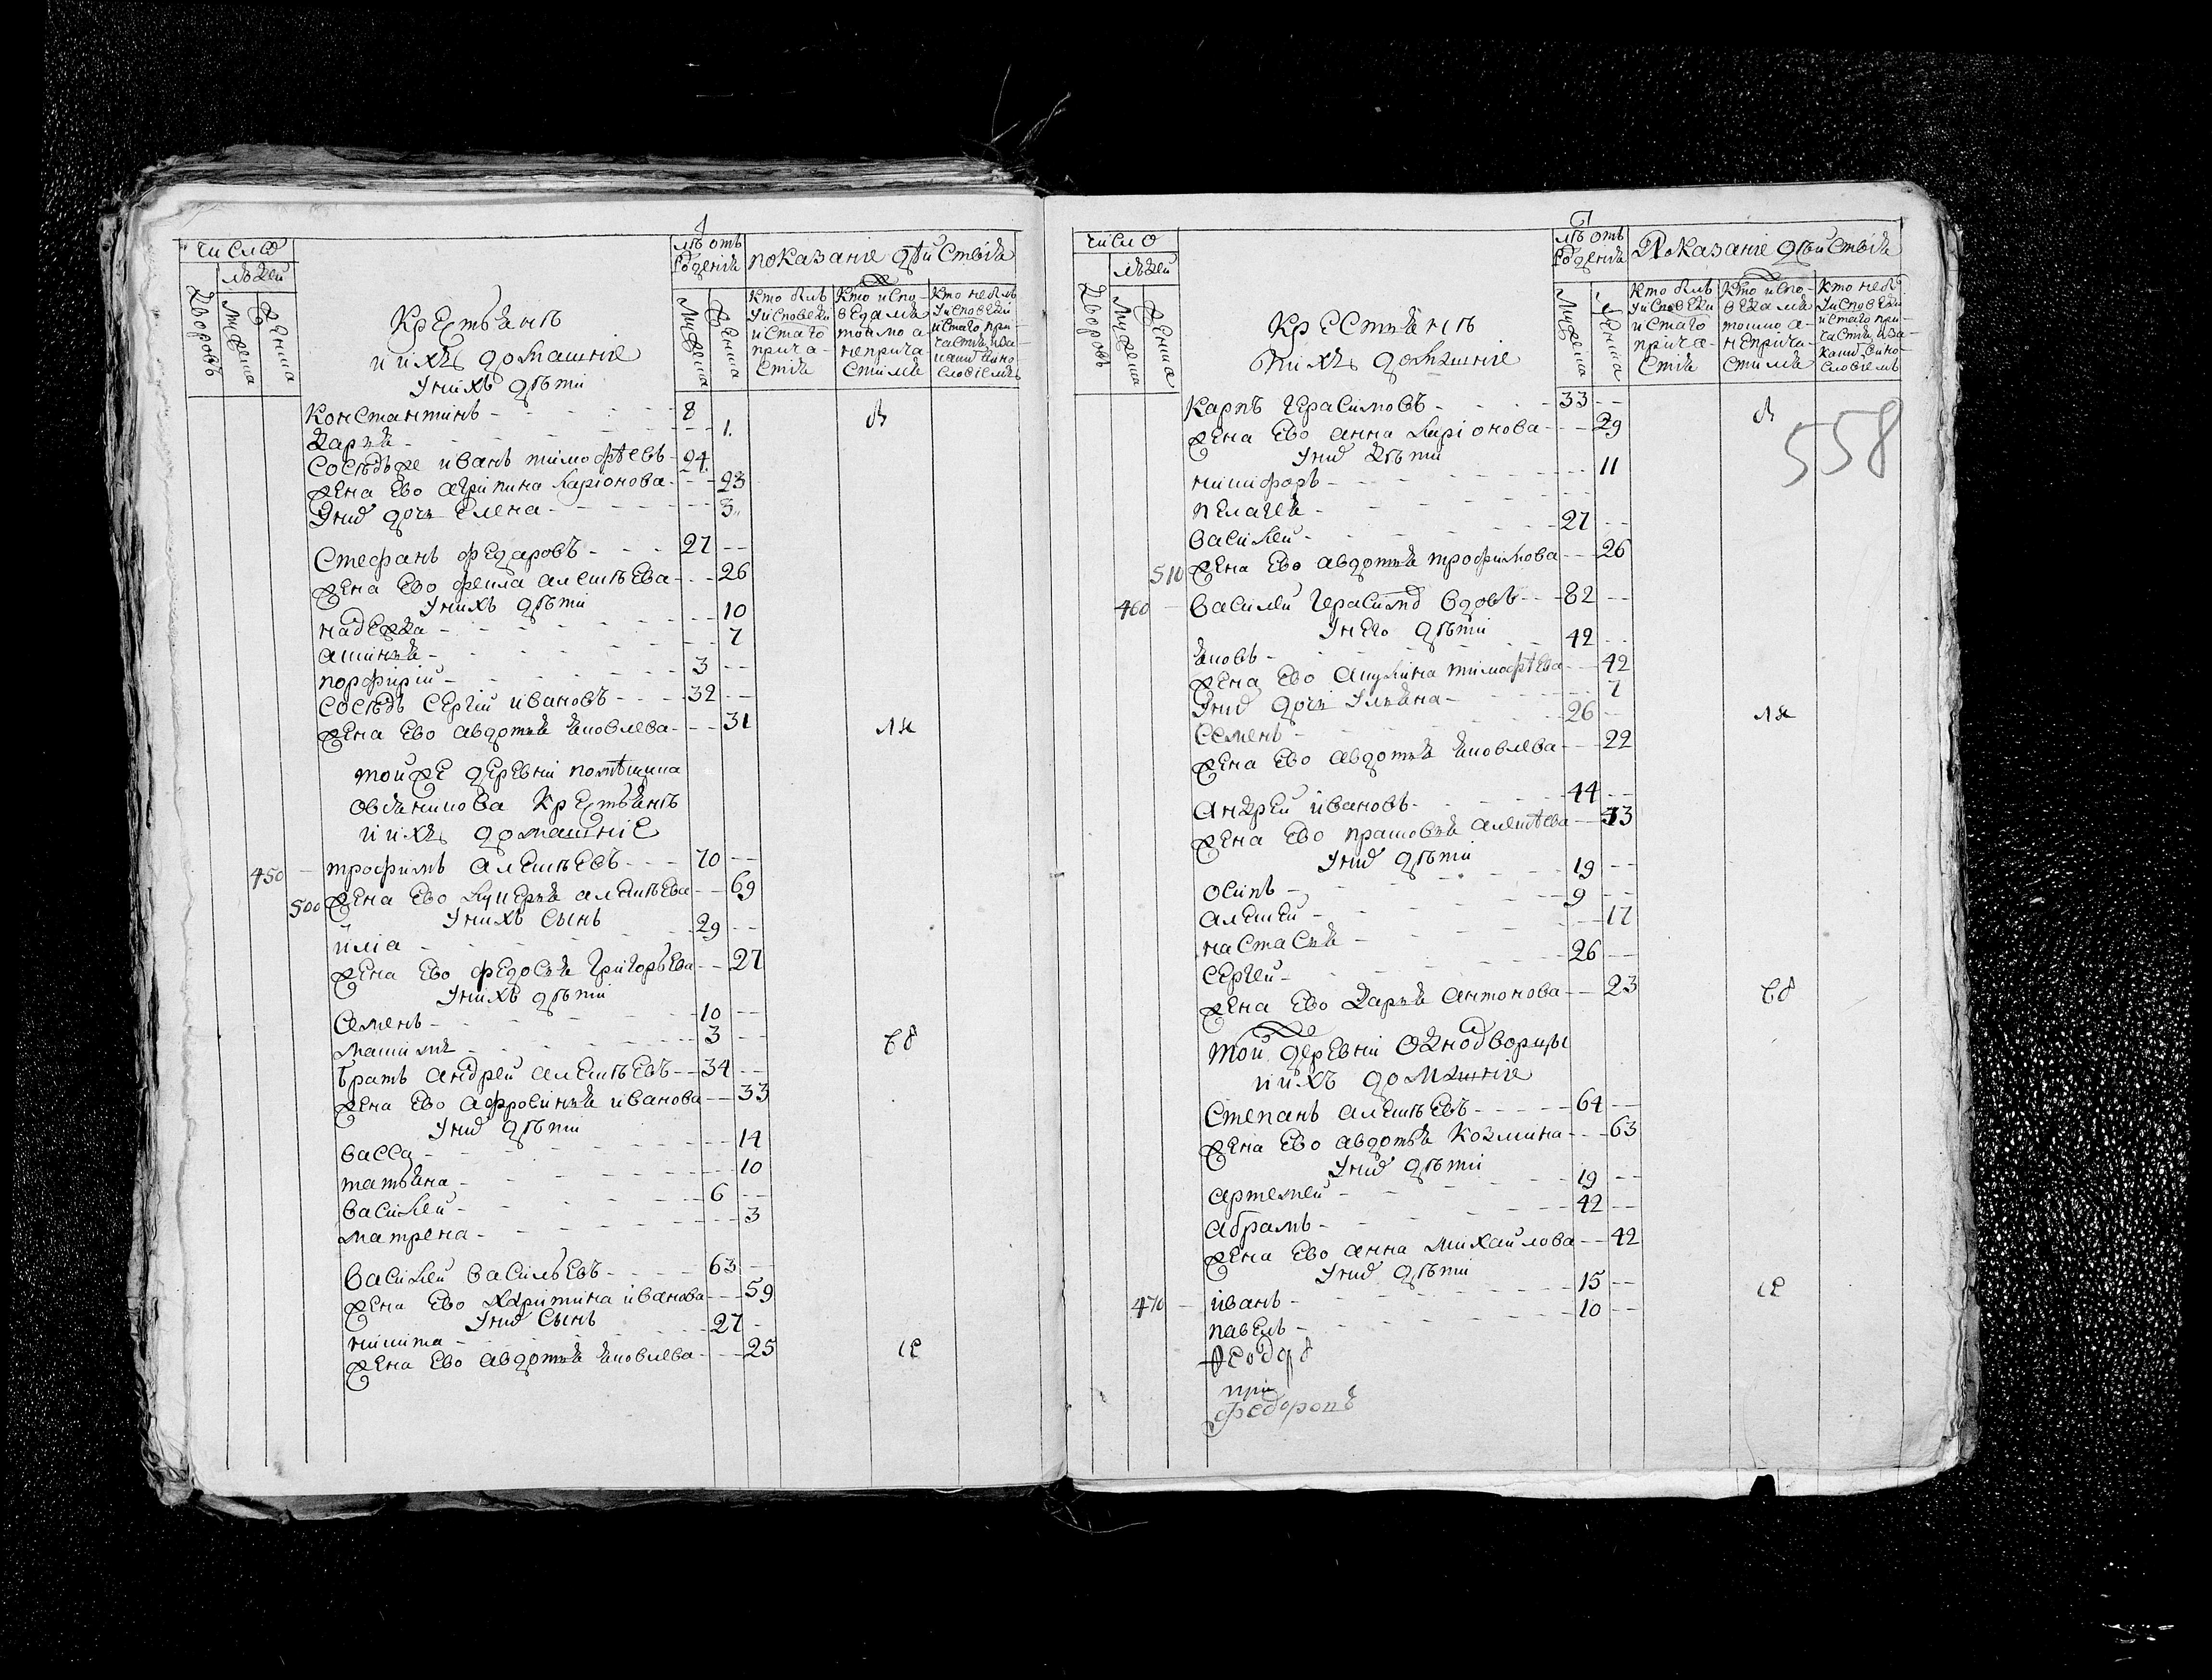 число
людей
дворовъ
мужеска
женска
Крестьянъ
и ихъ домашніе
у нихъ дѣти
лѣ отъ
рожденія
мужеска
женска
показаніе дѣйствія
кто былъ
у исповѣди
и стаго
прича-
стія
кто испо-
ведался
токмо а
не прича
стился
кто не былъ
у исповѣди
и стаго при-
частія и за
каим вино-
словіемъ
Константинъ - 8
Дарья - 1.
Сосѣдъ же иванъ тимофѣевъ - 24
жена Ево агрипина ларіонова - 23
у нихъ дочь Елена - 3
Стефанъ федаровъ - 27
жена Ево фекла алексѣева - 26
у нихъ дѣти
надежда - 10
аксинья - 7
порфирій - 3
сосѣдъ Сергій ивановъ - 32
жена Ево авдотья яковлева - 31
той же деревни помѣщика
крестьянъ
и ихъ домашніе
450 трофимъ алексѣевъ - 70
500 жена Ево лукерья алексѣева - 69
у нихъ сынъ
иліа - 29
жена Ево федосья григорьева - 27
у нихъ дѣти
семенъ - 10
максимъ - 3
братъ андрей алексѣевъ - 34
жена Ево афросинья иванова - 33
у них дѣти
васса - 14
татьяна - 10
василей - 6
матрена - 3
василей васильевъ - 63
жена Ево харитина иванова - 59
у них сынъ
никита - 27
жена Ево авдотья яковлева - 25
число
людей
дворовъ
мужеска
женска
Крестьянъ
и ихъ домашніе
лѣ отъ
рожденія
мужеска
женска
Показаніе дѣйствія
кто былъ
у исповѣди
и стаго
прича-
стія
кто испо-
ведался
токмо а-
не прича-
стился
кто не бы
у исповѣди
и стаго при-
частія и за
каим вино-
словіемъ
558
карпъ герасимовъ - 33
жена Ево анна ларіонова - 29
у них дѣти
никифоръ - 11
пелагея -
василей - 27
510 жена Ево авдотья трофимова - 26
460 василей герасимов вдовъ - 82
у него дѣти
яковъ - 42
жена Ево акулина тимофѣева - 42
у них дочь ульяна - 7
семенъ - 26
жена Ево авдотья яковлева - 22
андрей ивановъ - 44
жена Ево прасковья алексѣева - 33
у них дѣти
осипъ - 19
алексей - 9
настасья - 17
сергей - 26
жена Ево дарья антонова - 23
той деревни однодворцы
и ихъ домашніе
Степанъ алексѣевъ - 64
жена Ево авдотья козмина - 63
у них дѣти
артемей - 19
абрамъ - 42
жена Ево анна михайлова - 42
у них дѣти
470 иванъ - 15
павелъ - 10
при